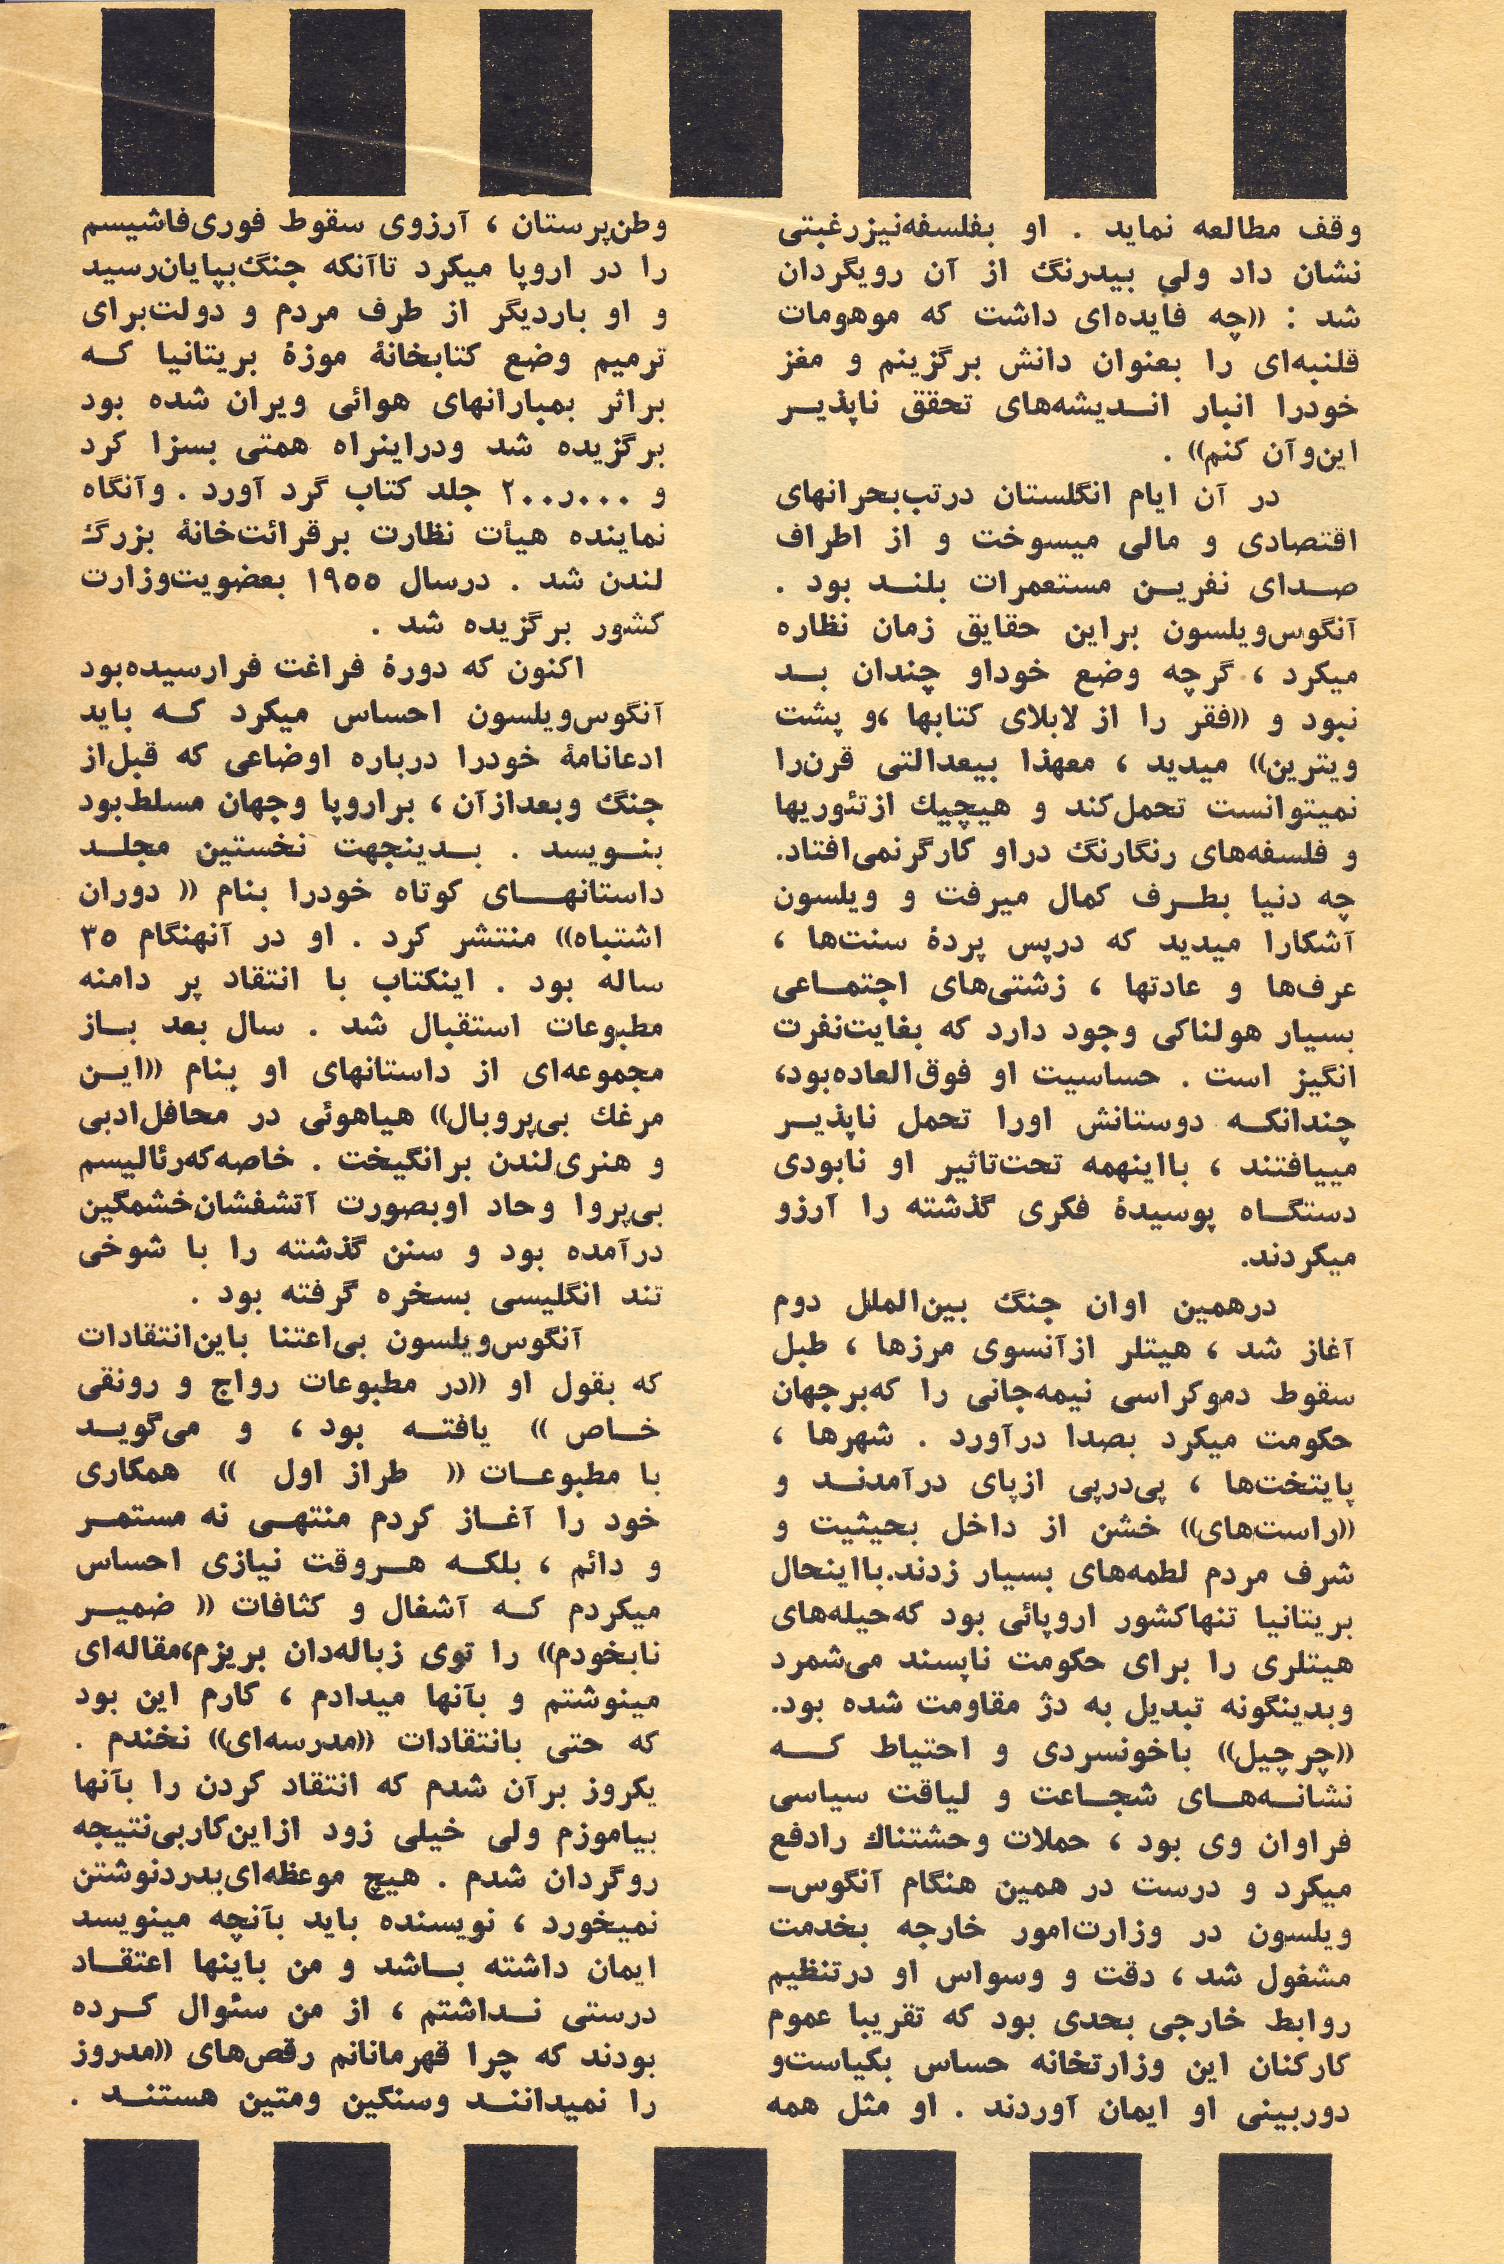 وقف مطالعه نماید . او بفلسفه‌نیزرغبتی
نشان داد ولی بیدرنگ از آن رویگردان
شد : ((چه فایده‌ای داشت که موهومات
قلنبه‌ای را بعنوان دانش برگزینم و مغز
خودرا انبار اندیشه‌های تحقق ناپذیر
این‌وآن کنم)) .
در آن ایام انگلستان درتب‌بحرانهای
اقتصادی و مالی میسوخت و از اطراف
صدای نفرین مستعمرات بلند بود .
آنگوس‌ویلسون براین حقایق زمان نظاره
میکرد ، گرچه وضع خوداو چندان بد
نبود و ((فقر را از لابلای کتابها ،و پشت
ویترین)) میدید ، معهذا بیعدالتی قرن‌را
نمیتوانست تحمل‌کند و هیچیك ازتئوریها
و فلسفه‌های رنگارنگ دراو کارگرنمی‌افتاد.
چه دنیا بطرف کمال میرفت و ویلسون
آشکارا میدید که درپس پردهٔ سنت‌ها ،
عرف‌ها و عادتها ، زشتی‌های اجتماعی
بسیار هولناکی وجود دارد که بغایت‌نفرت
انگیز است . حساسیت او فوق‌العاده‌بود،
چندانکه دوستانش اورا تحمل ناپذیر
مییافتند ، بااینهمه تحت‌تاثیر او نابودی
دستگاه پوسیدهٔ فکری گذشته را آرزو
میکردند.
درهمین اوان جنگ بین‌الملل دوم
آغاز شد ، هیتلر ازآنسوی مرزها ، طبل
سقوط دموکراسی نیمه‌جانی را که‌برجهان
حکومت میکرد بصدا درآورد . شهرها ،
پایتخت‌ها ، پی‌درپی ازپای درآمدند و
((راست‌های)) خشن از داخل بحیثیت و
شرف مردم لطمه‌های بسیار زدند.بااینحال
بریتانیا تنهاکشور اروپائی بود که‌حیله‌های
هیتلری را برای حکومت ناپسند می‌شمرد
وبدینگونه تبدیل به دژ مقاومت شده بود.
((چرچیل)) باخونسردی و احتیاط که
نشانه‌های شجاعت و لیاقت سیاسی
فراوان وی بود ، حملات وحشتناك رادفع
میکرد و درست در همین هنگام آنگوس–
ویلسون در وزارت‌امور خارجه بخدمت
مشغول شد ، دقت و وسواس او درتنظیم
روابط خارجی بحدی بود که تقریبا عموم
کارکنان این وزارتخانه حساس بکیاست‌و
دوربینی او ایمان آوردند . او مثل همه
وطن‌پرستان ، آرزوی سقوط فوری‌فاشیسم
را در اروپا میکرد تاآنکه جنگ‌بپایان‌رسید
و او باردیگر از طرف مردم و دولت‌برای
ترمیم وضع کتابخانهٔ موزهٔ بریتانیا که
براثر بمبارانهای هوائی ویران شده بود
برگزیده شد ودراینراه همتی بسزا کرد
و ۲۰۰ر۰۰۰ جلد کتاب گرد آورد . وآنگاه
نماینده هیأت نظارت برقرائت‌خانهٔ بزرگ
لندن شد . درسال ۱۹۵۵ بعضویت‌وزارت
کشور برگزیده شد .
اکنون که دورهٔ فراغت فرارسیده‌بود
آنگوس‌ویلسون احساس میکرد که باید
ادعانامهٔ خودرا درباره اوضاعی که قبل‌از
جنگ وبعدازآن ، براروپا وجهان مسلط‌بود
بنویسد . بدینجهت نخستین مجلد
داستانهای کوتاه خودرا بنام (( دوران
اشتباه)) منتشر کرد . او در آنهنگام ۳۵
ساله بود . اینکتاب با انتقاد پر دامنه
مطبوعات استقبال شد . سال بعد باز
مجموعه‌ای از داستانهای او بنام ((این
مرغك بی‌پروبال)) هیاهوئی در محافل‌ادبی
و هنری‌لندن برانگیخت . خاصه‌که‌رئالیسم
بی‌پروا وحاد اوبصورت آتشفشان‌خشمگین
درآمده بود و سنن گذشته را با شوخی
تند انگلیسی بسخره گرفته بود .
آنگوس‌ویلسون بی‌اعتنا باین‌انتقادات
که بقول او ((در مطبوعات رواج و رونقی
خاص )) یافته بود ، و می‌گوید
با مطبوعات (( طراز اول )) همکاری
خود را آغاز کردم منتهی نه مستمر
و دائم ، بلکه هروقت نیازی احساس
میکردم که آشغال و کثافات (( ضمیر
نابخودم)) را توی زباله‌دان بریزم،مقاله‌ای
مینوشتم و بآنها میدادم ، کارم این بود
که حتی بانتقادات ((مدرسه‌ای)) نخندم .
یکروز برآن شدم که انتقاد کردن را بآنها
بیاموزم ولی خیلی زود ازاین‌کاربی‌نتیجه
روگردان شدم . هیچ موعظه‌ای‌بدردنوشتن
نمیخورد ، نویسنده باید بآنچه مینویسد
ایمان داشته باشد و من باینها اعتقاد
درستی نداشتم ، از من سئوال کرده
بودند که چرا قهرمانانم رقص‌های ((مدروز
را نمیدانند وسنگین ومتین هستند .